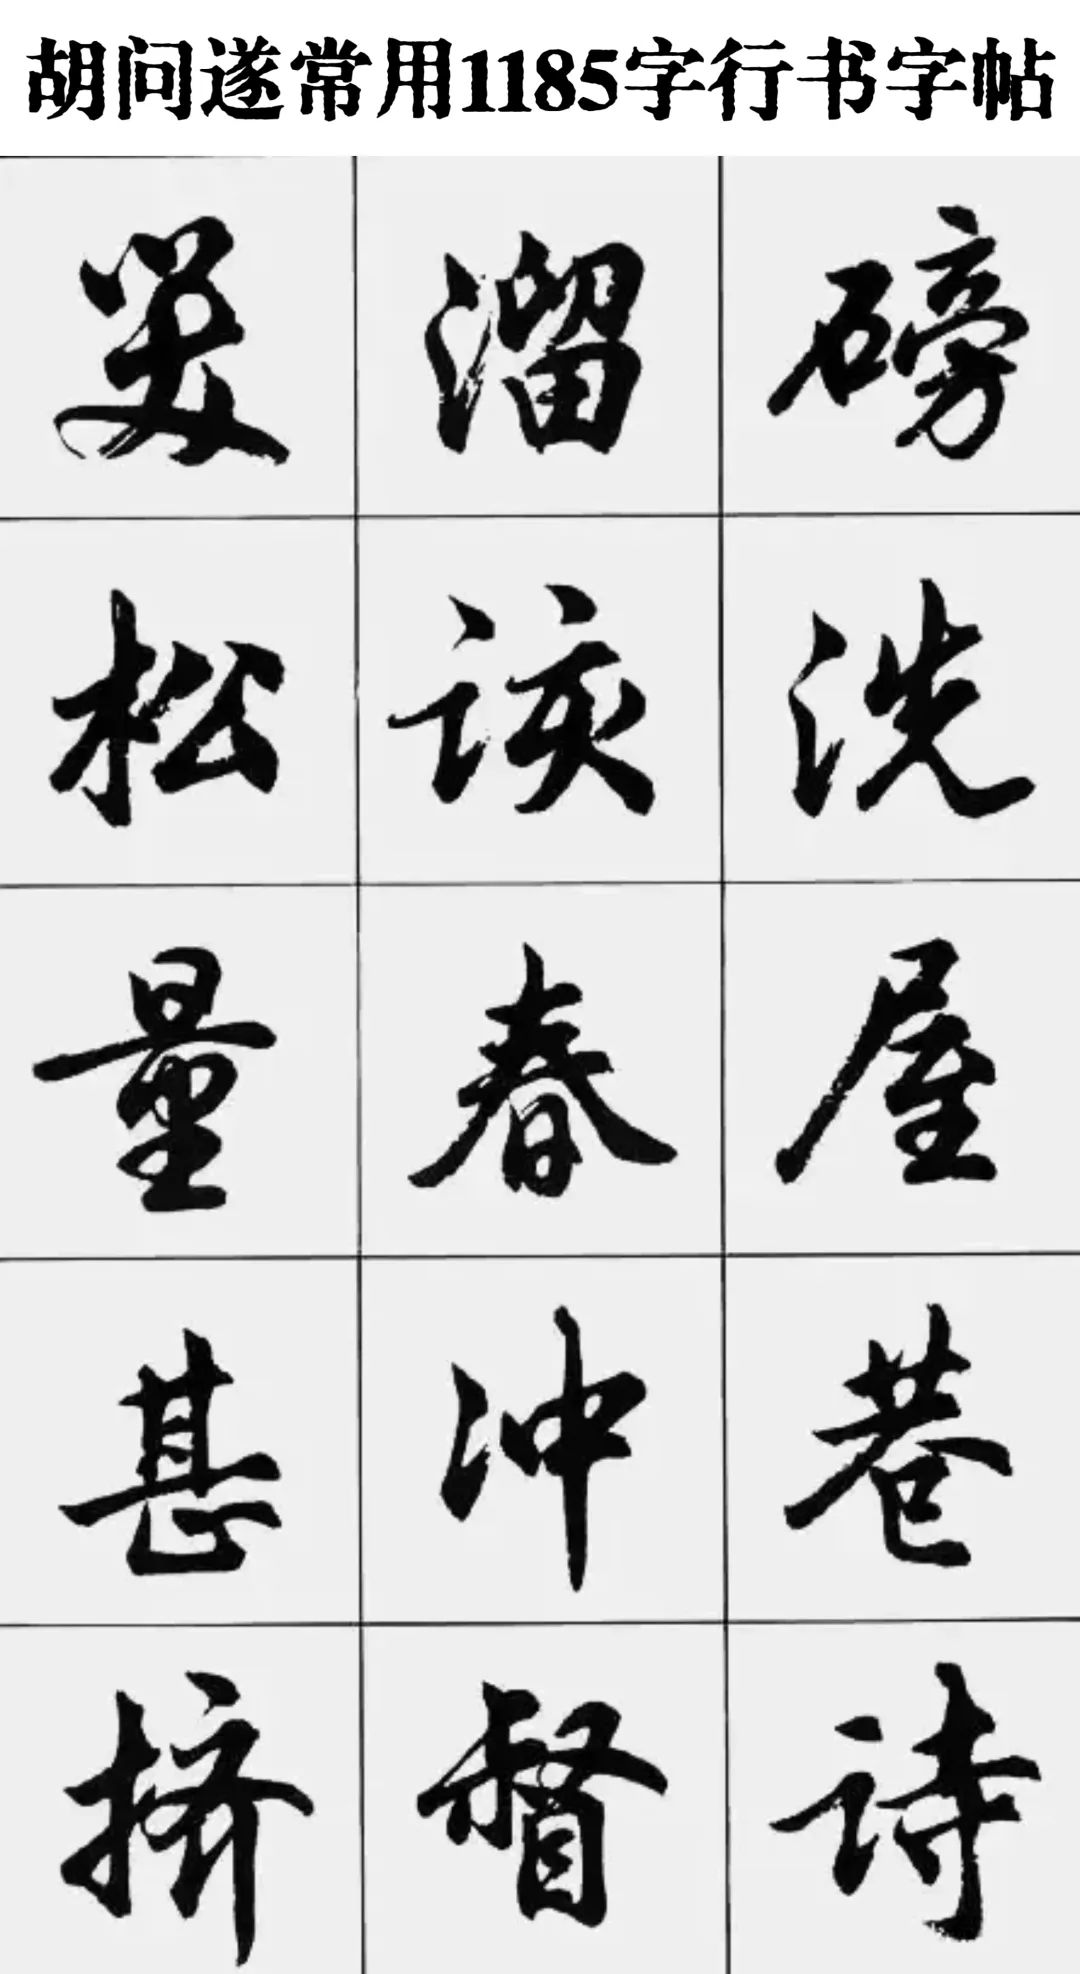 胡问遂常用1185字行书字帖
美 溜 磅
松 该 洗
量 春 屋
甚 冲 巷
挤 督 诗